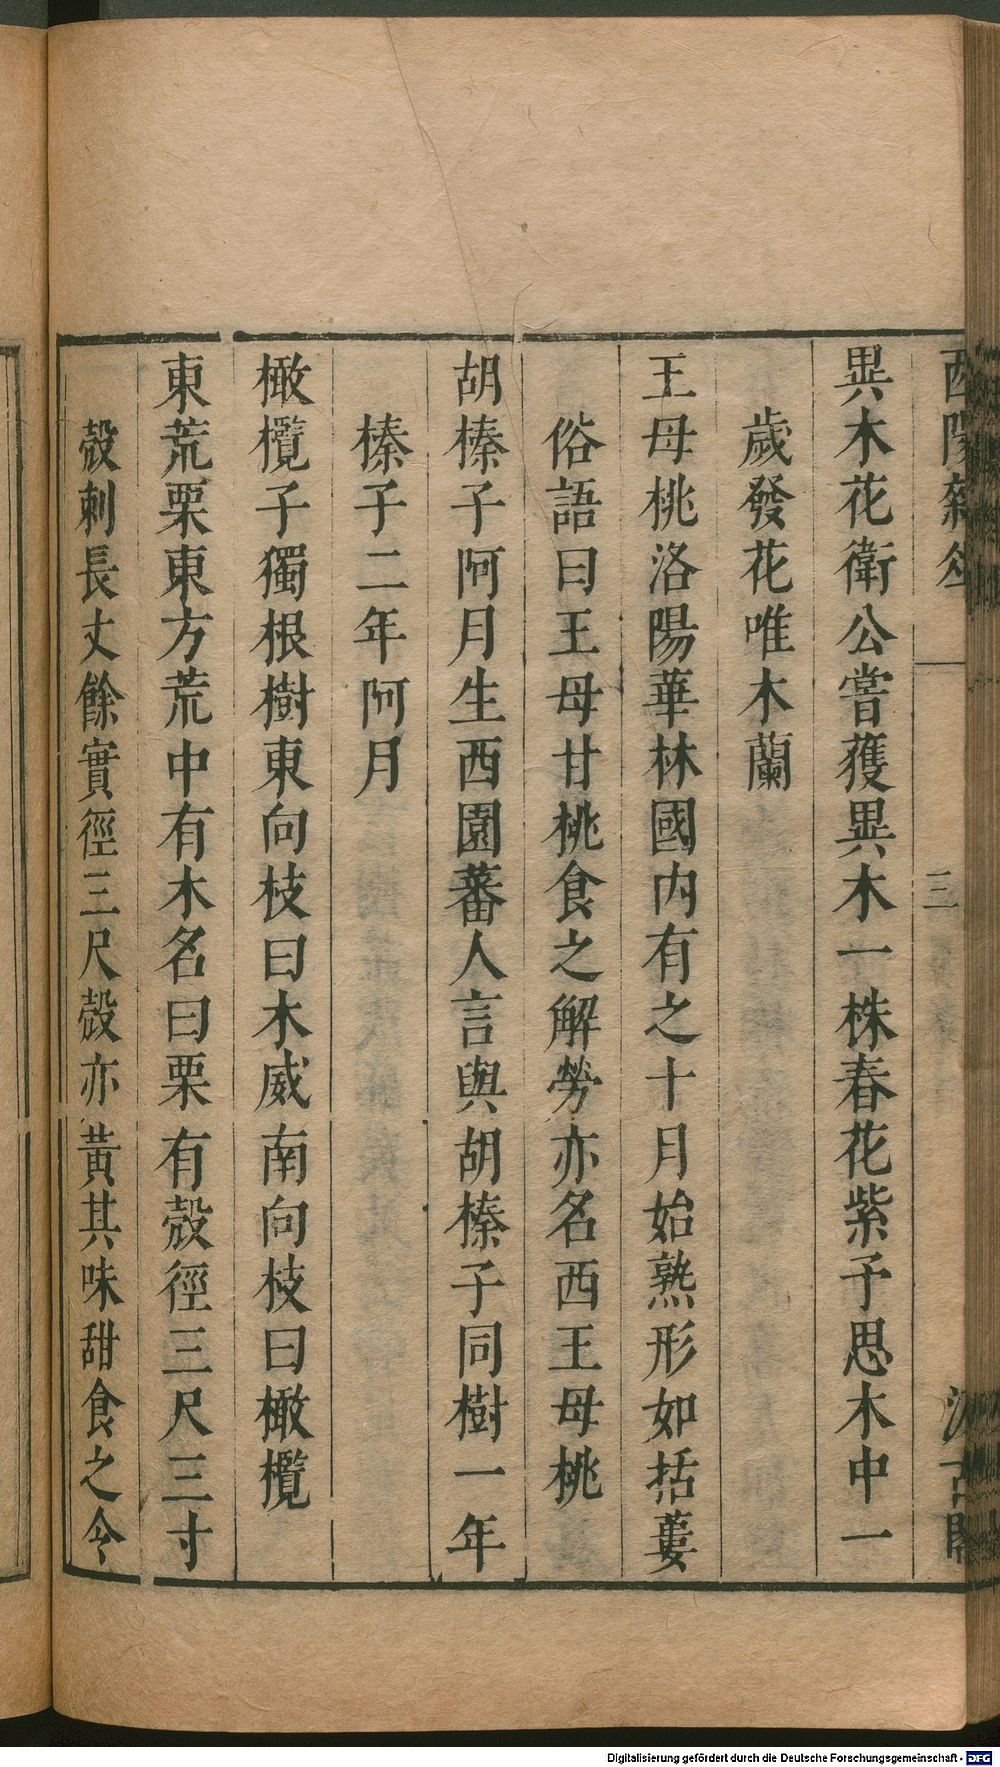 酉陽雜俎 三 汲古閣
異木花衛公嘗獲異木一株春花紫予思木中一
歲發花唯木蘭
王母桃洛陽華林國内有之十月始熟形如括蔞
俗語曰王母甘桃食之解勞亦名西王母桃
胡榛子阿月生西園蕃人言與胡榛子同樹一年
榛子二年阿月
橄欖子獨根樹東向枝曰木威南向枝曰橄欖
東荒栗東方荒中有木名曰栗有殼徑三尺三寸
殼刺長丈餘實徑三尺殼亦黃其味甜食之令
Digitalisierung gefördert durch die Deutsche Forschungsgemeinschaft - DFG